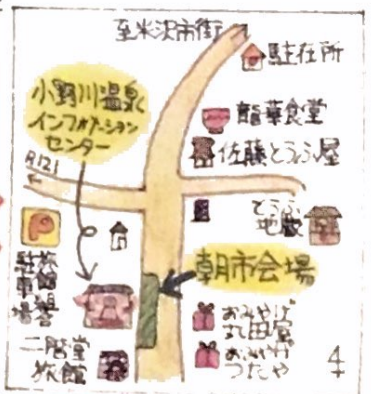 至米沢市街
駐在所
小野川温泉
インフォメーション
センター
龍華食堂
佐藤とうふ屋
R121
とうふ
地蔵
P
朝市会場
旅館組合
駐車場
おみやげ
丸田屋
おみやげ
つたや
二階堂
旅館
4